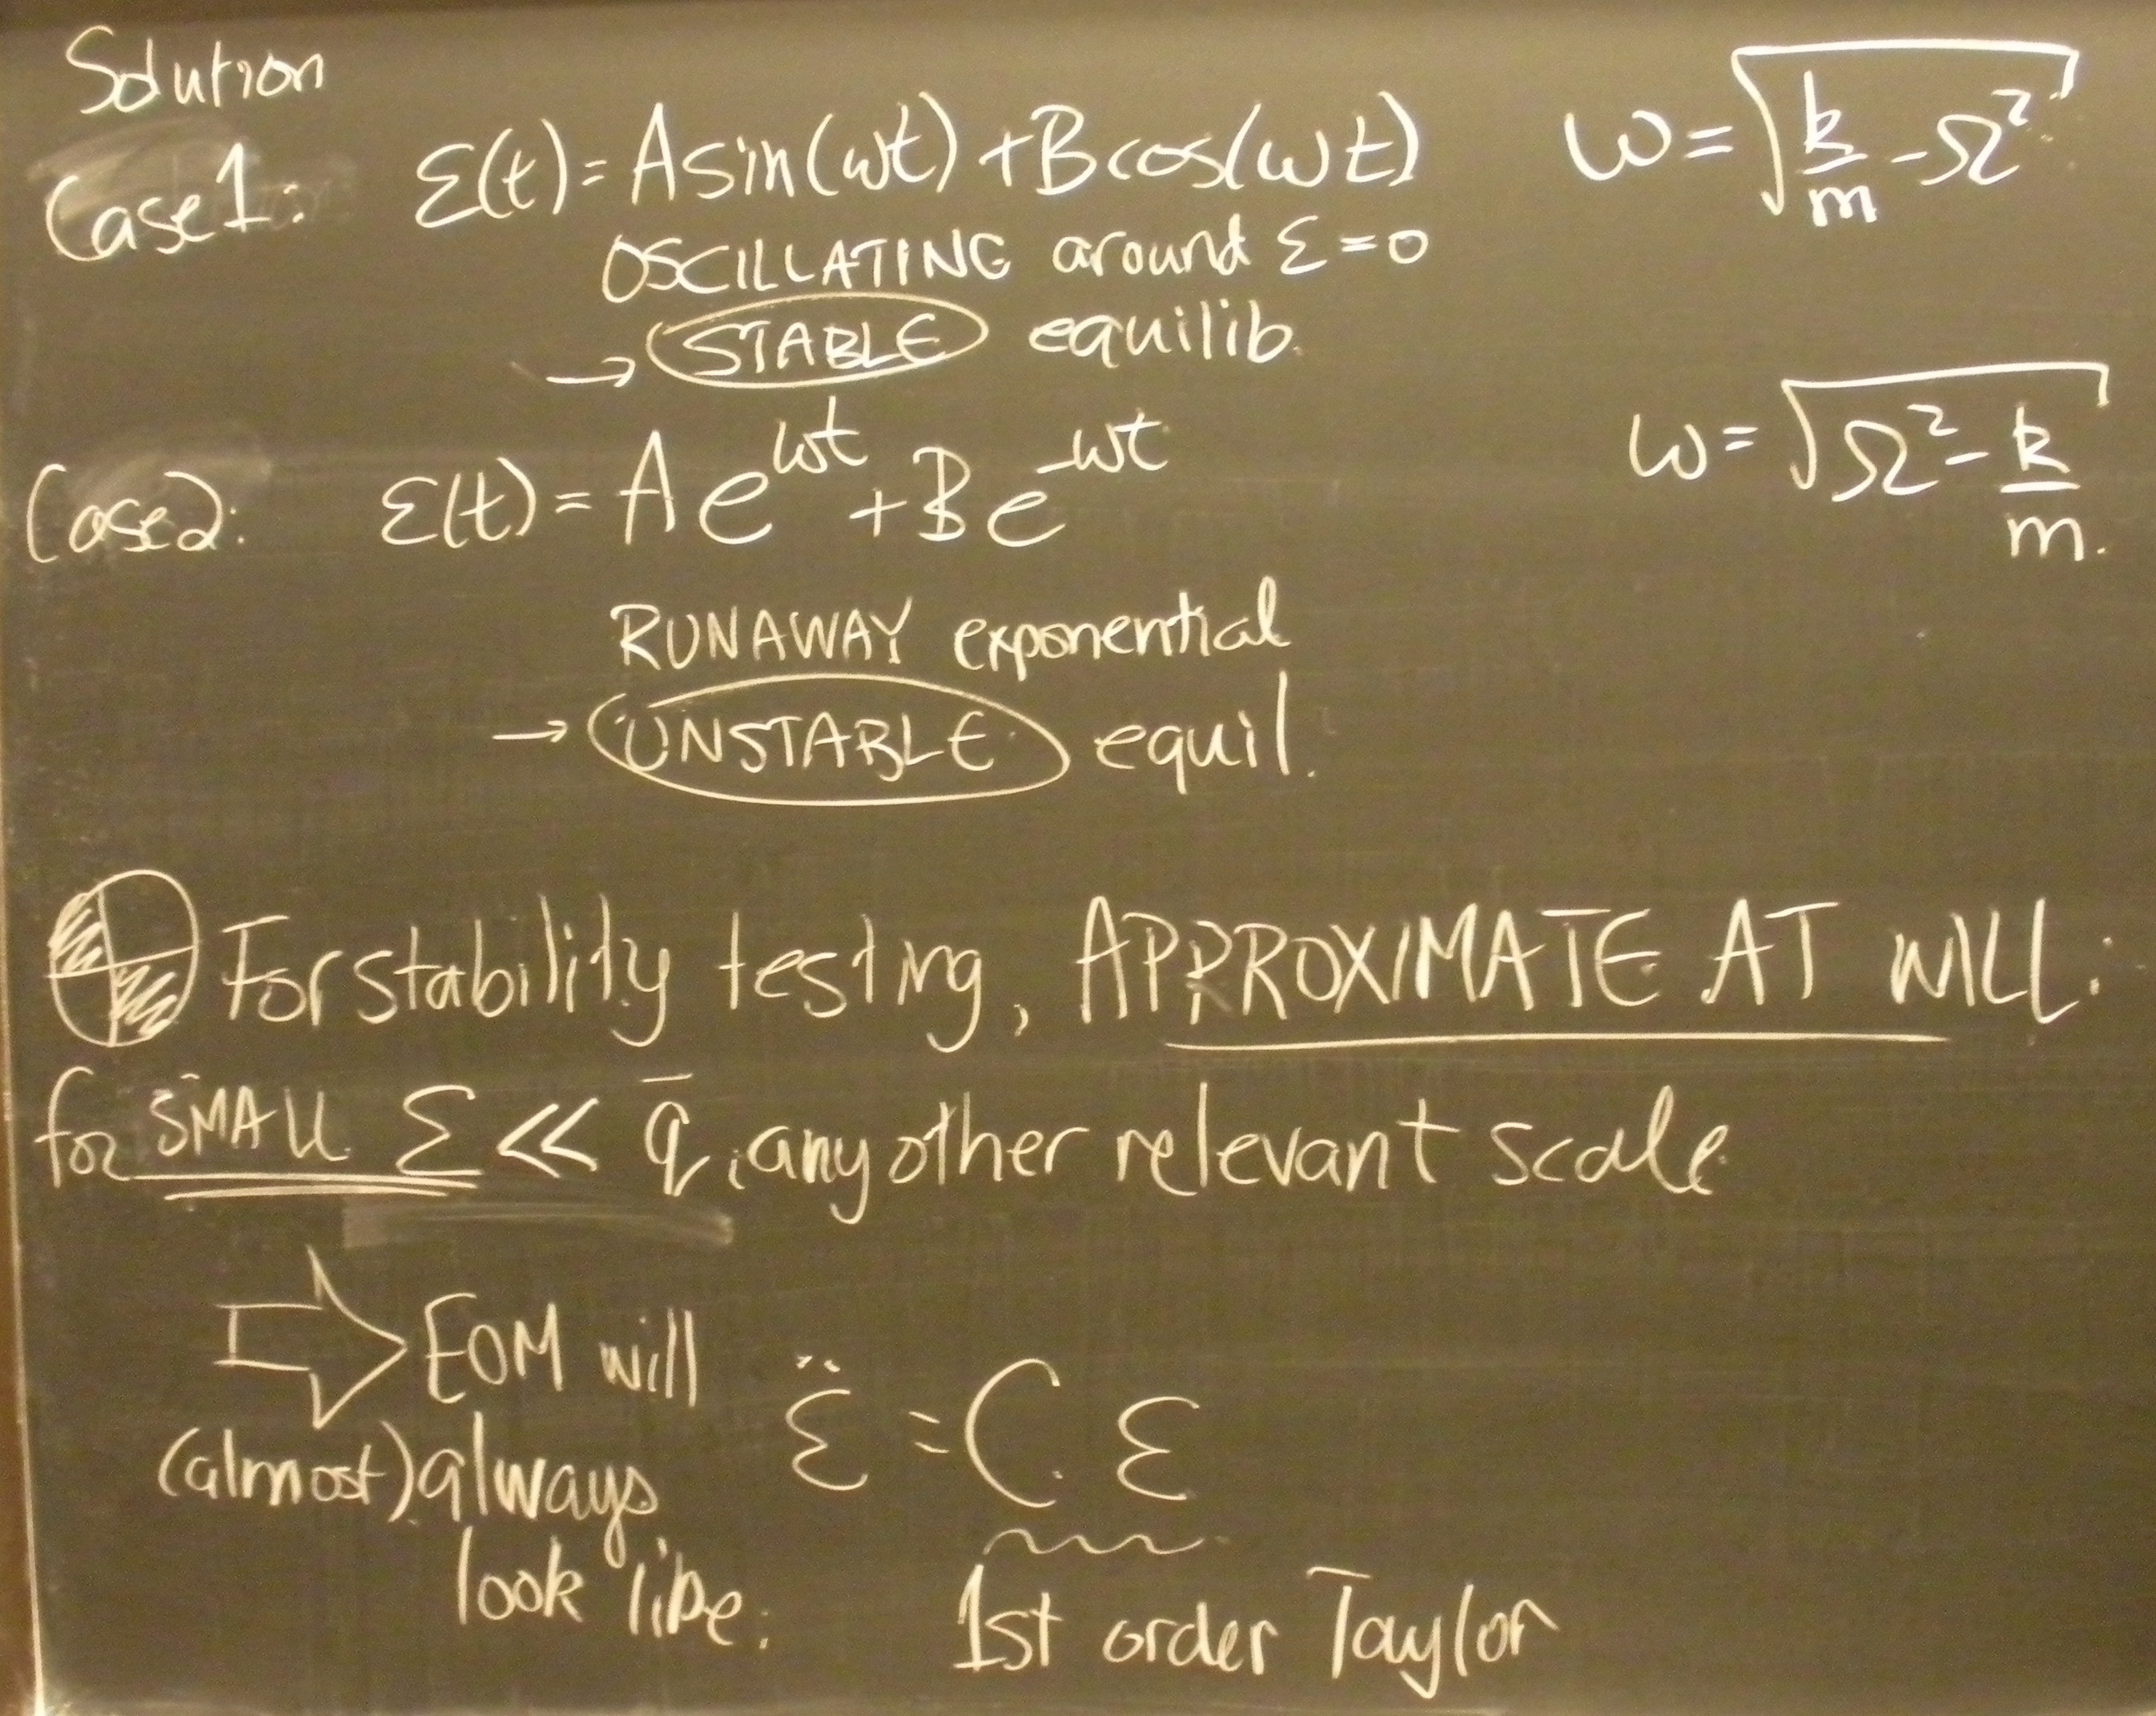 Solution
Case1: ε(t) = A sin(ωt) + B cos(ωt) ω = √(k/m - Ω²)
OSCILLATING around ε = 0
→ STABLE equilib.
Case2: ε(t) = A e^{ωt} + B e^{-ωt} ω = √(Ω² - k/m)
RUNAWAY exponential
→ UNSTABLE equil.
For stability testing, APPROXIMATE AT WILL:
for SMALL ε << q̄, any other relevant scale
⇒ EOM will
(almost) always
look like: ε̈ = C ε
1st order Taylor